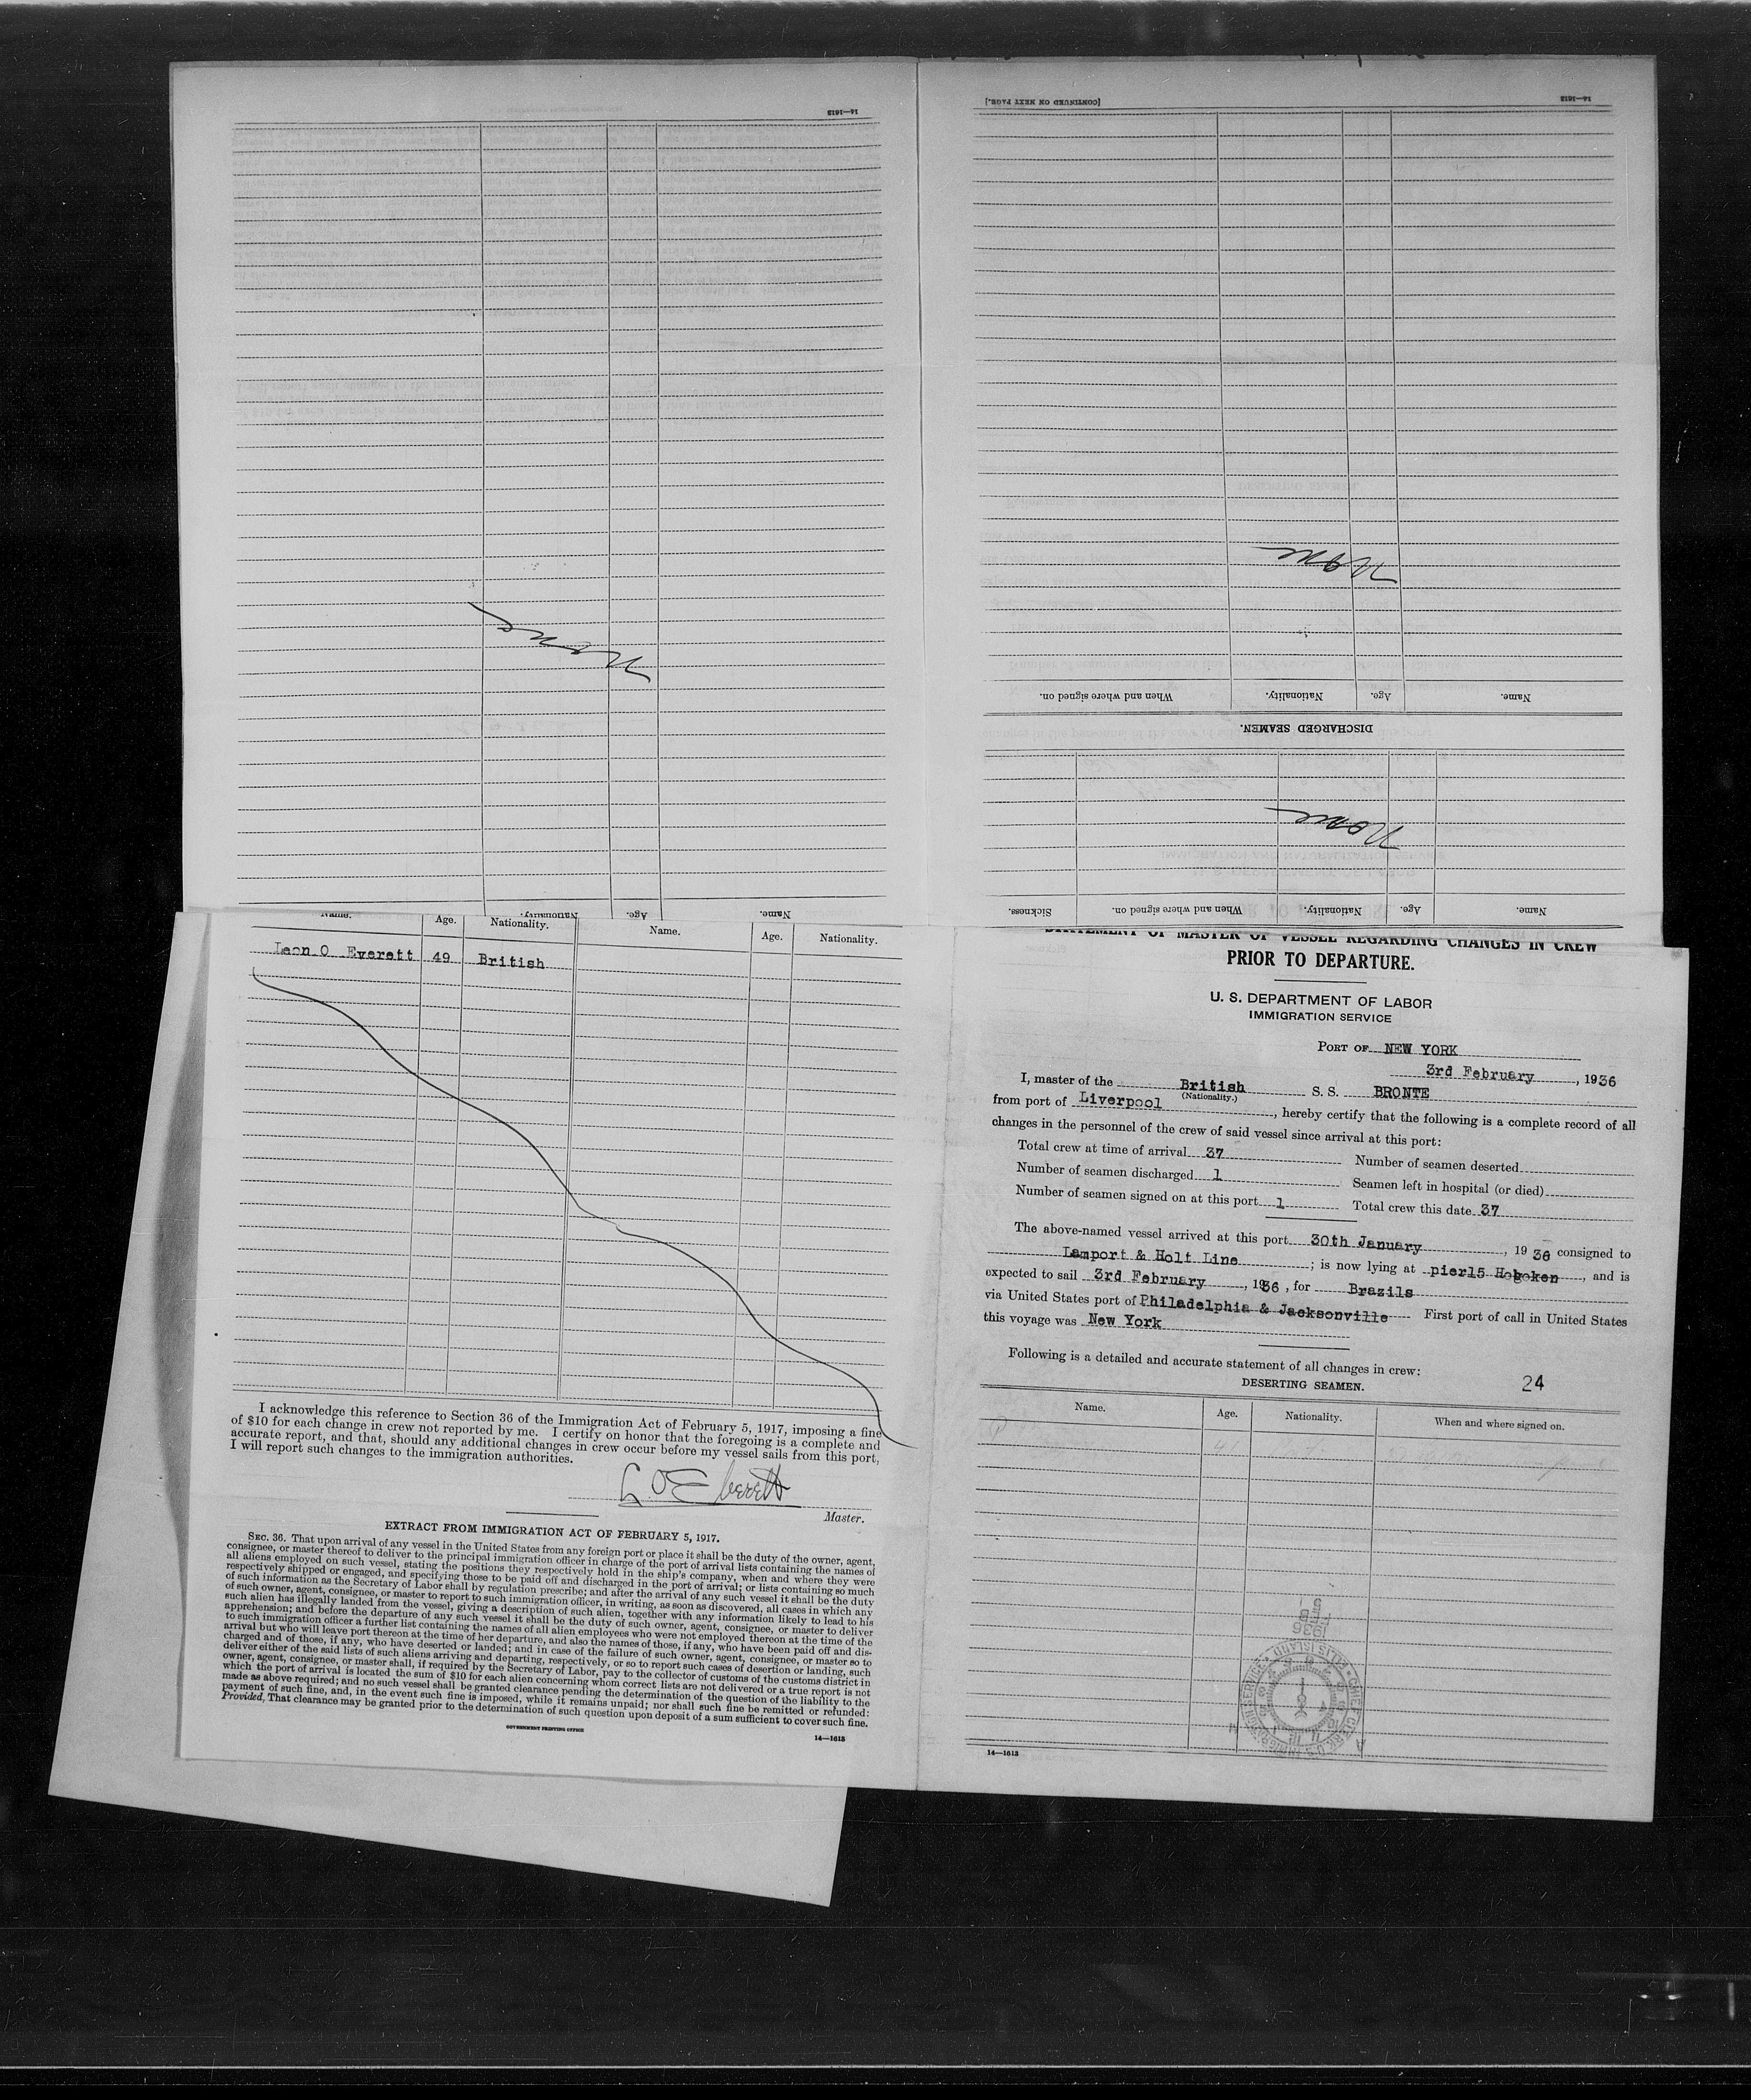 14—1613
None
Name.
Age.
Nationality.
[CONTINUED ON NEXT PAGE.]
14—1613
None
Name.
Age.
Nationality.
When and where signed on.
DISCHARGED SEAMEN.
None
Name.
Age.
Nationality.
When and where signed on.
Sickness.
Name. Age. Nationality. Name. Age. Nationality.
Leon O Everett 49 British
I acknowledge this reference to Section 36 of the Immigration Act of February 5, 1917, imposing a fine
of $10 for each change in crew not reported by me. I certify on honor that the foregoing is a complete and
accurate report, and that, should any additional changes in crew occur before my vessel sails from this port,
I will report such changes to the immigration authorities.
L. O Everett
Master.
EXTRACT FROM IMMIGRATION ACT OF FEBRUARY 5, 1917.
SEC. 36. That upon arrival of any vessel in the United States from any foreign port or place it shall be the duty of the owner, agent,
consignee, or master thereof to deliver to the principal immigration officer in charge of the port of arrival lists containing the names of
all aliens employed on such vessel, stating the positions they respectively hold in the ship's company, when and where they were
respectively shipped or engaged, and specifying those to be paid off and discharged in the port of arrival; or lists containing so much
of such information as the Secretary of Labor shall by regulation prescribe; and after the arrival of any such vessel it shall be the duty
of such owner, agent, consignee, or master to report to such immigration officer, in writing, as soon as discovered, all cases in which any
such alien has illegally landed from the vessel, giving a description of such alien, together with any information likely to lead to his
apprehension; and before the departure of any such vessel it shall be the duty of such owner, agent, consignee, or master to deliver
to such immigration officer a further list containing the names of all alien employees who were not employed thereon at the time of the
arrival but who will leave port thereon at the time of her departure, and also the names of those, if any, who have been paid off and dis-
charged and of those, if any, who have deserted or landed; and in case of the failure of such owner, agent, consignee, or master so to
deliver either of the said lists of such aliens arriving and departing, respectively, or so to report such cases of desertion or landing, such
owner, agent, consignee, or master shall, if required by the Secretary of Labor, pay to the collector of customs of the customs district in
which the port of arrival is located the sum of $10 for each alien concerning whom correct lists are not delivered or a true report is not
made as above required; and no such vessel shall be granted clearance pending the determination of the question of the liability to the
payment of such fine, and, in the event such fine is imposed, while it remains unpaid; nor shall such fine be remitted or refunded:
Provided, That clearance may be granted prior to the determination of such question upon deposit of a sum sufficient to cover such fine.
GOVERNMENT PRINTING OFFICE
14—1613
STATEMENT OF MASTER OF VESSEL REGARDING CHANGES IN CREW
PRIOR TO DEPARTURE.
U. S. DEPARTMENT OF LABOR
IMMIGRATION SERVICE
PORT OF NEW YORK
3rd February, 1936
I, master of the British S. S. BRONTE
(Nationality.)
from port of Liverpool, hereby certify that the following is a complete record of all
changes in the personnel of the crew of said vessel since arrival at this port:
Total crew at time of arrival 37 Number of seamen deserted
Number of seamen discharged 1 Seamen left in hospital (or died)
Number of seamen signed on at this port 1 Total crew this date 37
The above-named vessel arrived at this port 30th January, 1936 consigned to
Lamport & Holt Line; is now lying at pier15 Hoboken, and is
expected to sail 3rd February, 1936, for Brazils
via United States port of Philadelphia & Jacksonville First port of call in United States
this voyage was New York
Following is a detailed and accurate statement of all changes in crew:
DESERTING SEAMEN. 24
Name. Age. Nationality. When and where signed on.
1936
CHIEF CLERK U.S. IMMIGRATION SERVICE • ELLIS ISLAND
14—1613